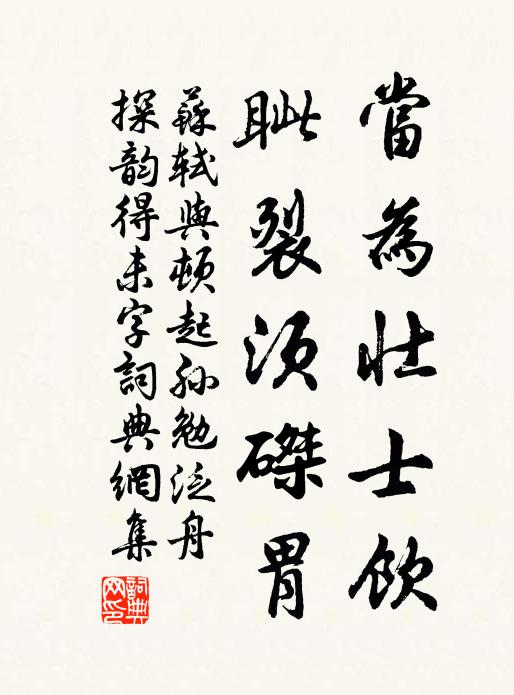 當為壯士飲
眦裂須磔胃
蘇軾與頓起孫勉泛舟
探韵得未字詞典網集
詞典网印